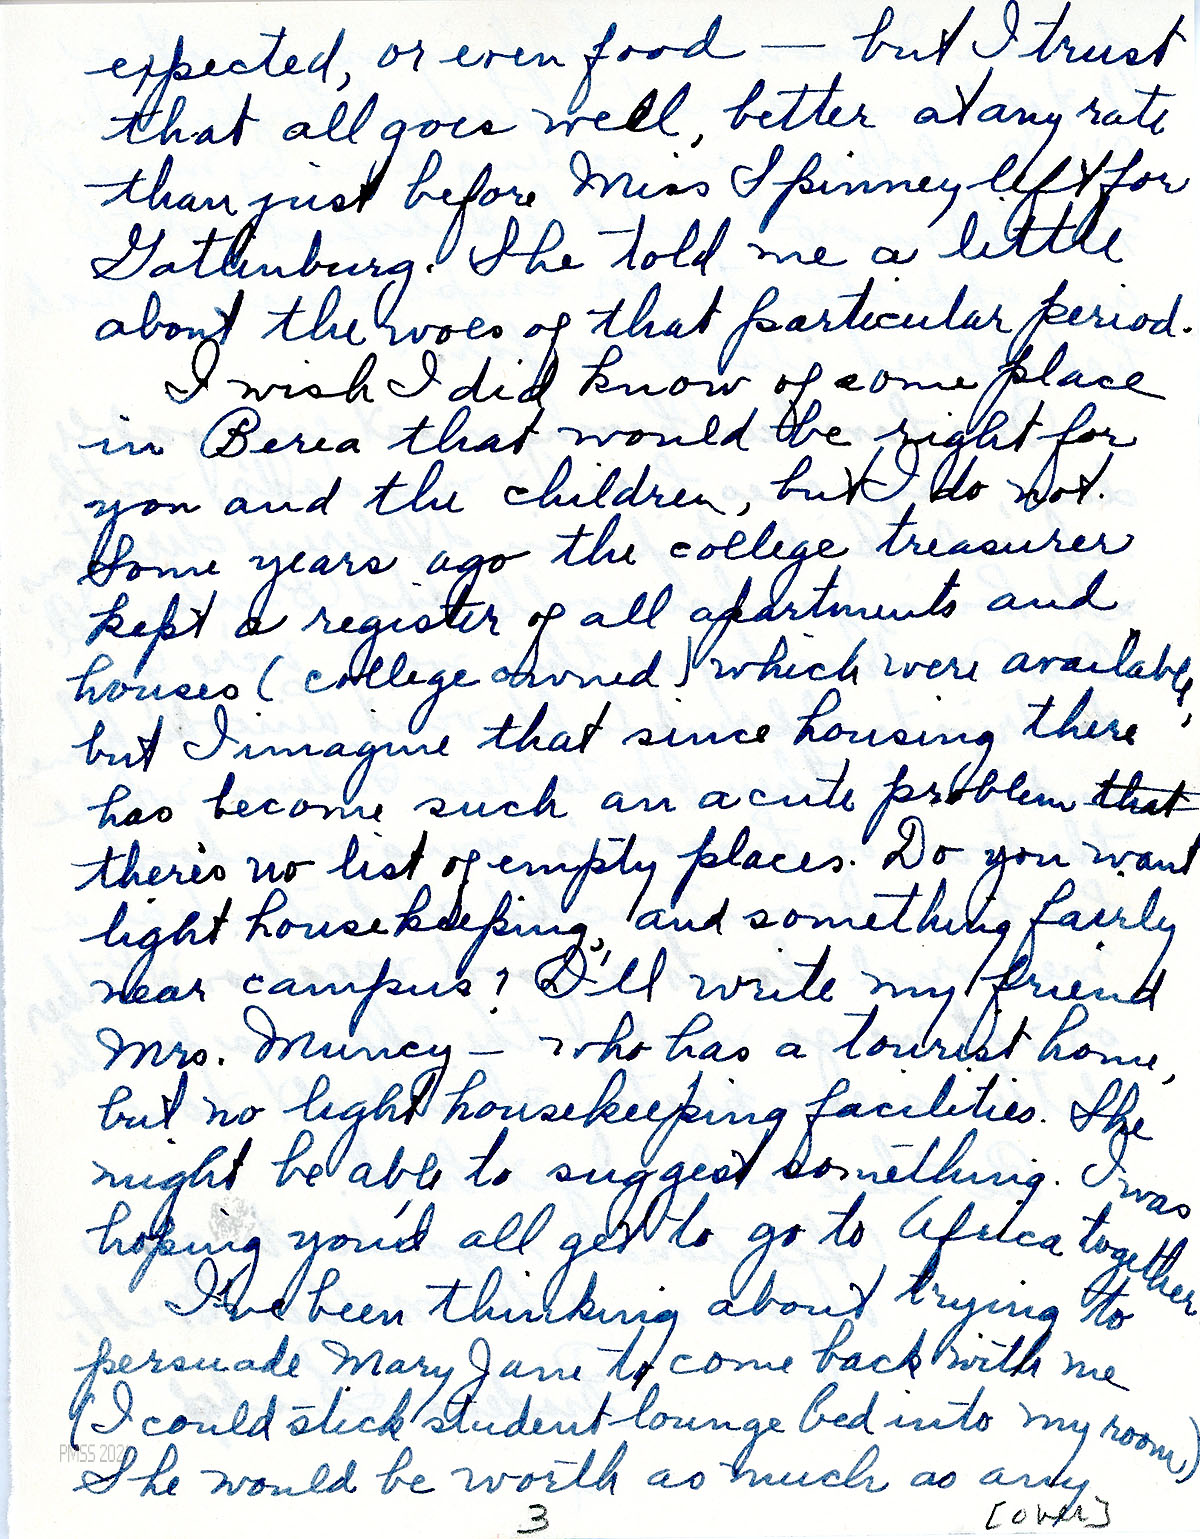 expected, or even food — but I trust
that all goes well, better at any rate
than just before Miss Spinney left for
Gatlinburg. She told me a little
about the woes of that particular period.
I wish I did know of some place
in Berea that would be right for
you and the children, but I do not.
Some years ago the college treasurer
kept a register of all apartments and
houses (college owned) which were available,
but I imagine that since housing there
has become such an acute problem that
there's no list of empty places. Do you want
light housekeeping, and something fairly
near campus? I'll write my friend
Mrs. Muncy — who has a tourist home,
but no light housekeeping facilities. She
might be able to suggest something. I was
hoping you'd all get to go to Africa together.
I've been thinking about trying to
persuade Mary Jane to come back with me
(I could stick student lounge bed into my room)
She would be worth as much as any
PMSS 202
3
[over]